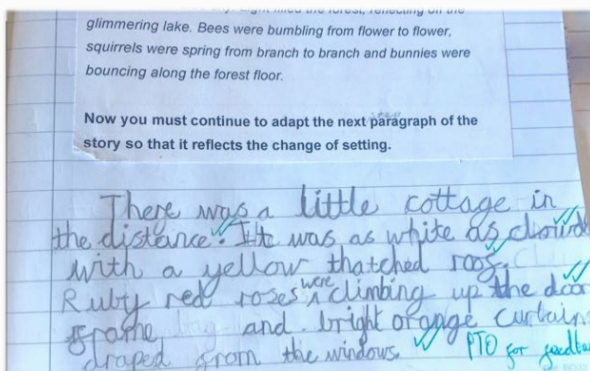 forest, reflecting off the
glimmering lake. Bees were bumbling from flower to flower,
squirrels were spring from branch to branch and bunnies were
bouncing along the forest floor.
Now you must continue to adapt the next paragraph of the
story so that it reflects the change of setting.
There was a little cottage in
the distance. It was as white as clouds
with a yellow thatched roof.
Ruby red roses were climbing up the door
frame and bright orange curtains
draped from the windows. PTO for feedback